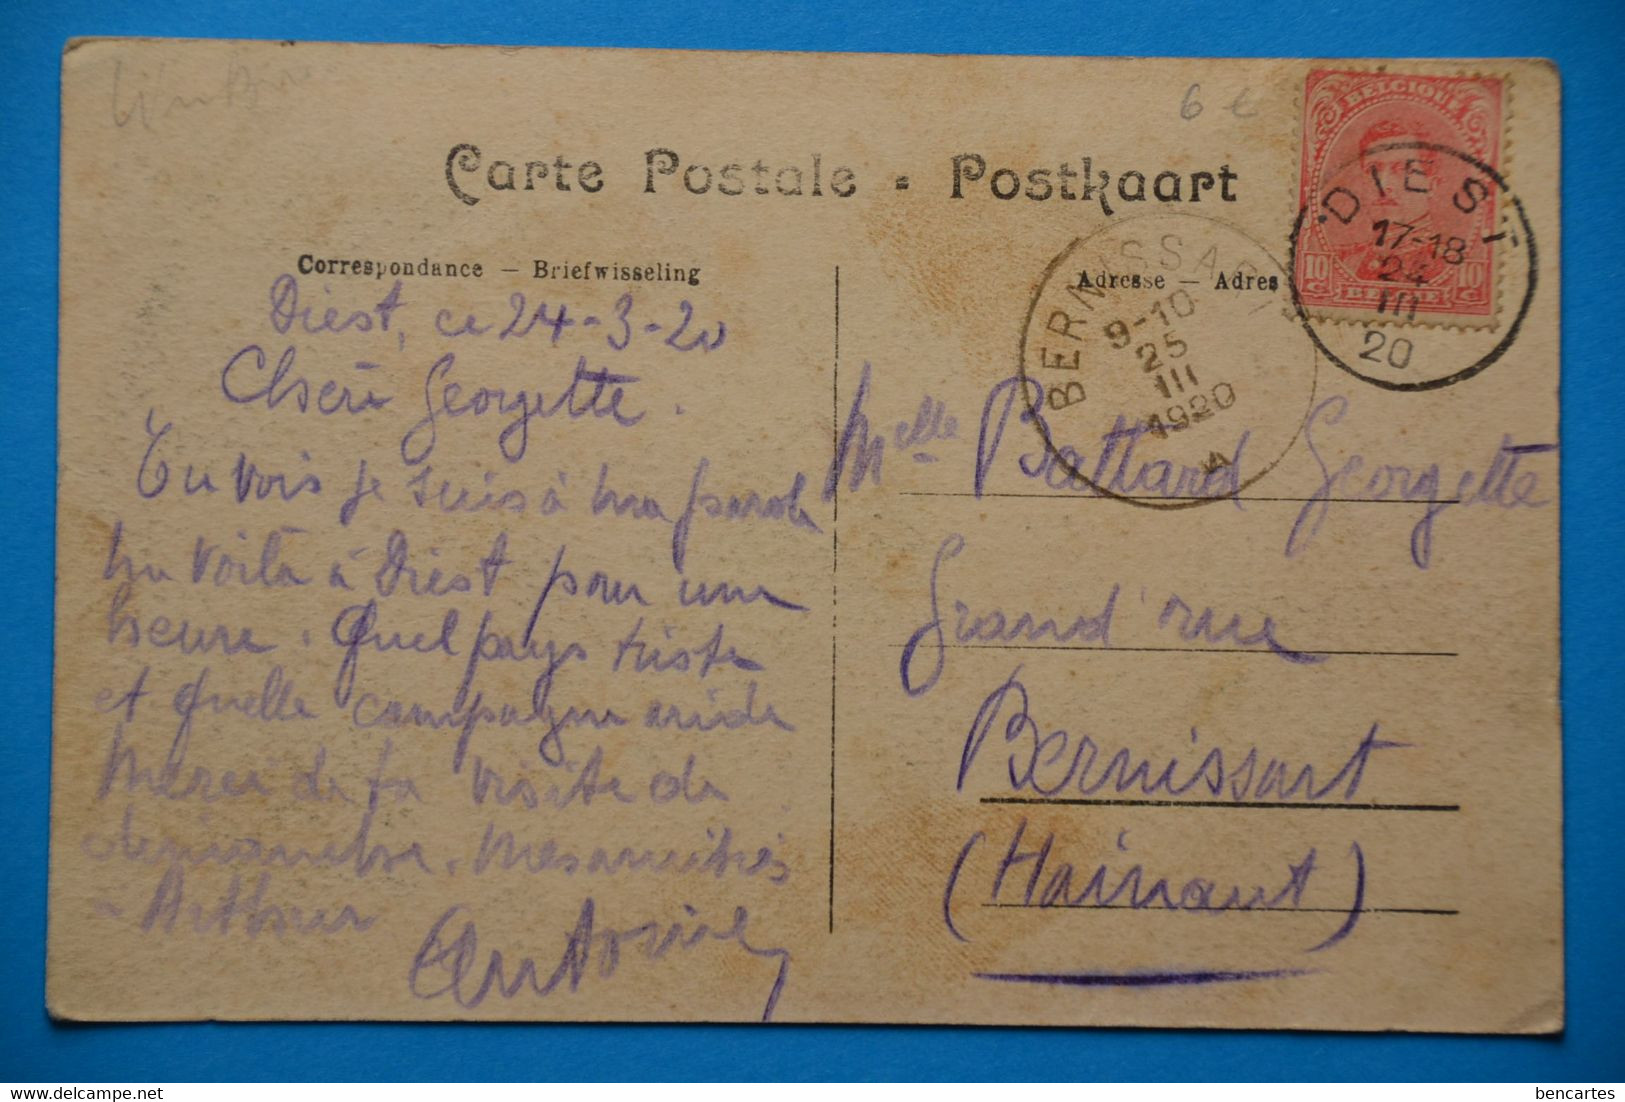 6 €
Carte Postale - Postkaart
BELGIQUE
10 C
10 C
BELGIË
DIEST
17-18
24
III
20
BERNISSART
9-10
25
III
1920
A
Correspondance — Briefwisseling
Adresse — Adres
Diest, ce 24-3-20
Chère Georgette.
Tu vois je suis à ma parole
me voilà à Diest pour une
heure. Quel pays triste
et quelle campagne aride
Merci de ta visite de
dimanche. Mes amitiés
à Arthur
Antoine
Melle Battard Georgette
Grand'rue
Bernissart
(Hainaut)
bencartes